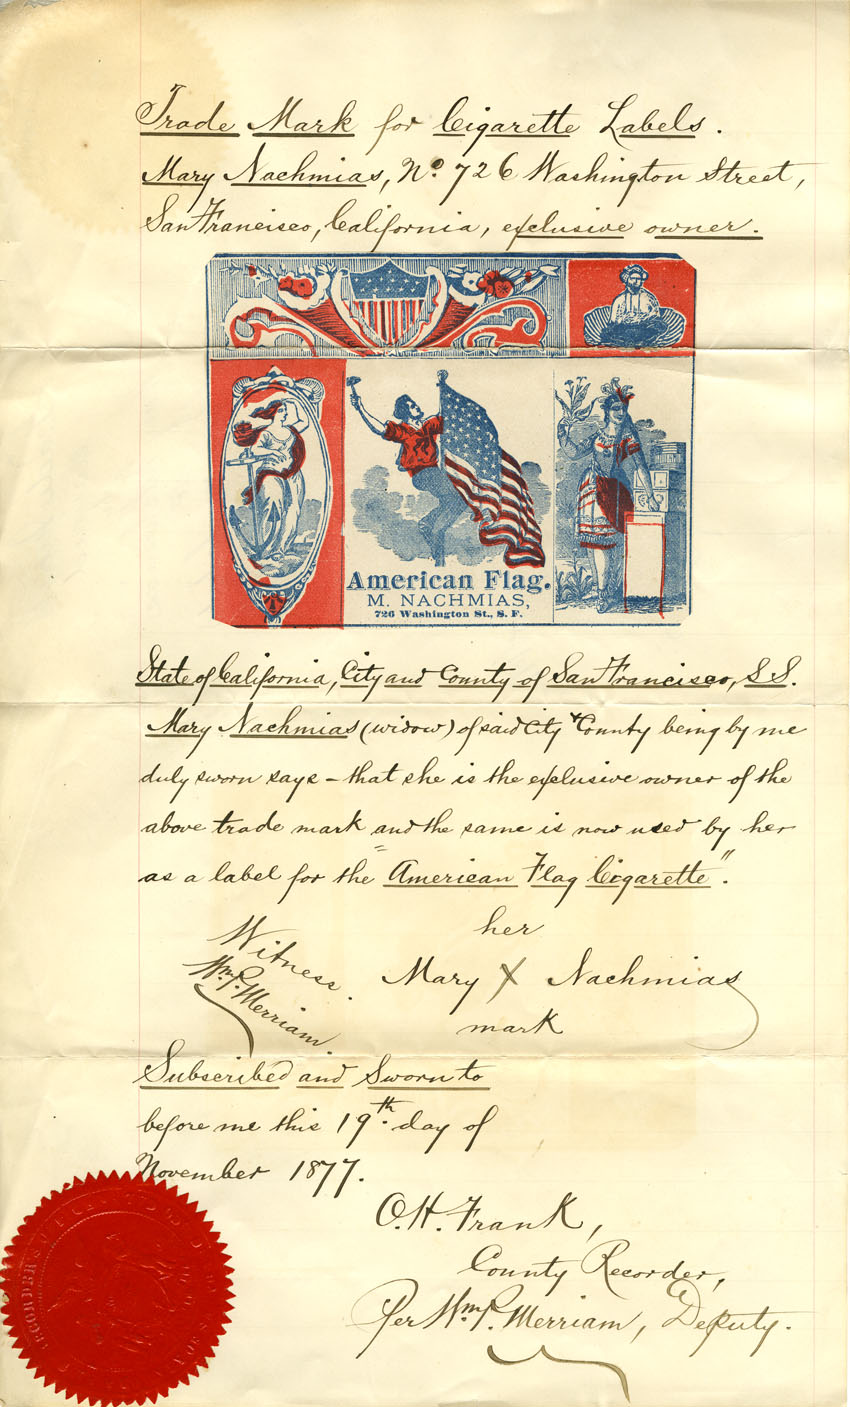 Trade Mark for Cigarette Labels.
Mary Nachmias, No. 726 Washington Street,
San Francisco, California, exclusive owner.
American Flag.
M. NACHMIAS,
726 Washington St., S. F.
State of California, City and County of San Francisco, S S.
Mary Nachmias (widow) of said City & County being by me
duly sworn says – that she is the exclusive owner of the
above trade mark and the same is now used by her
as a label for the "American Flag Cigarette".
her
Mary X Nachmias
mark
Witness.
Wm. P. Merriam
Subscribed and Sworn to
before me this 19th. day of
November 1877.
O. H. Frank,
County Recorder,
Per Wm. P. Merriam, Deputy.